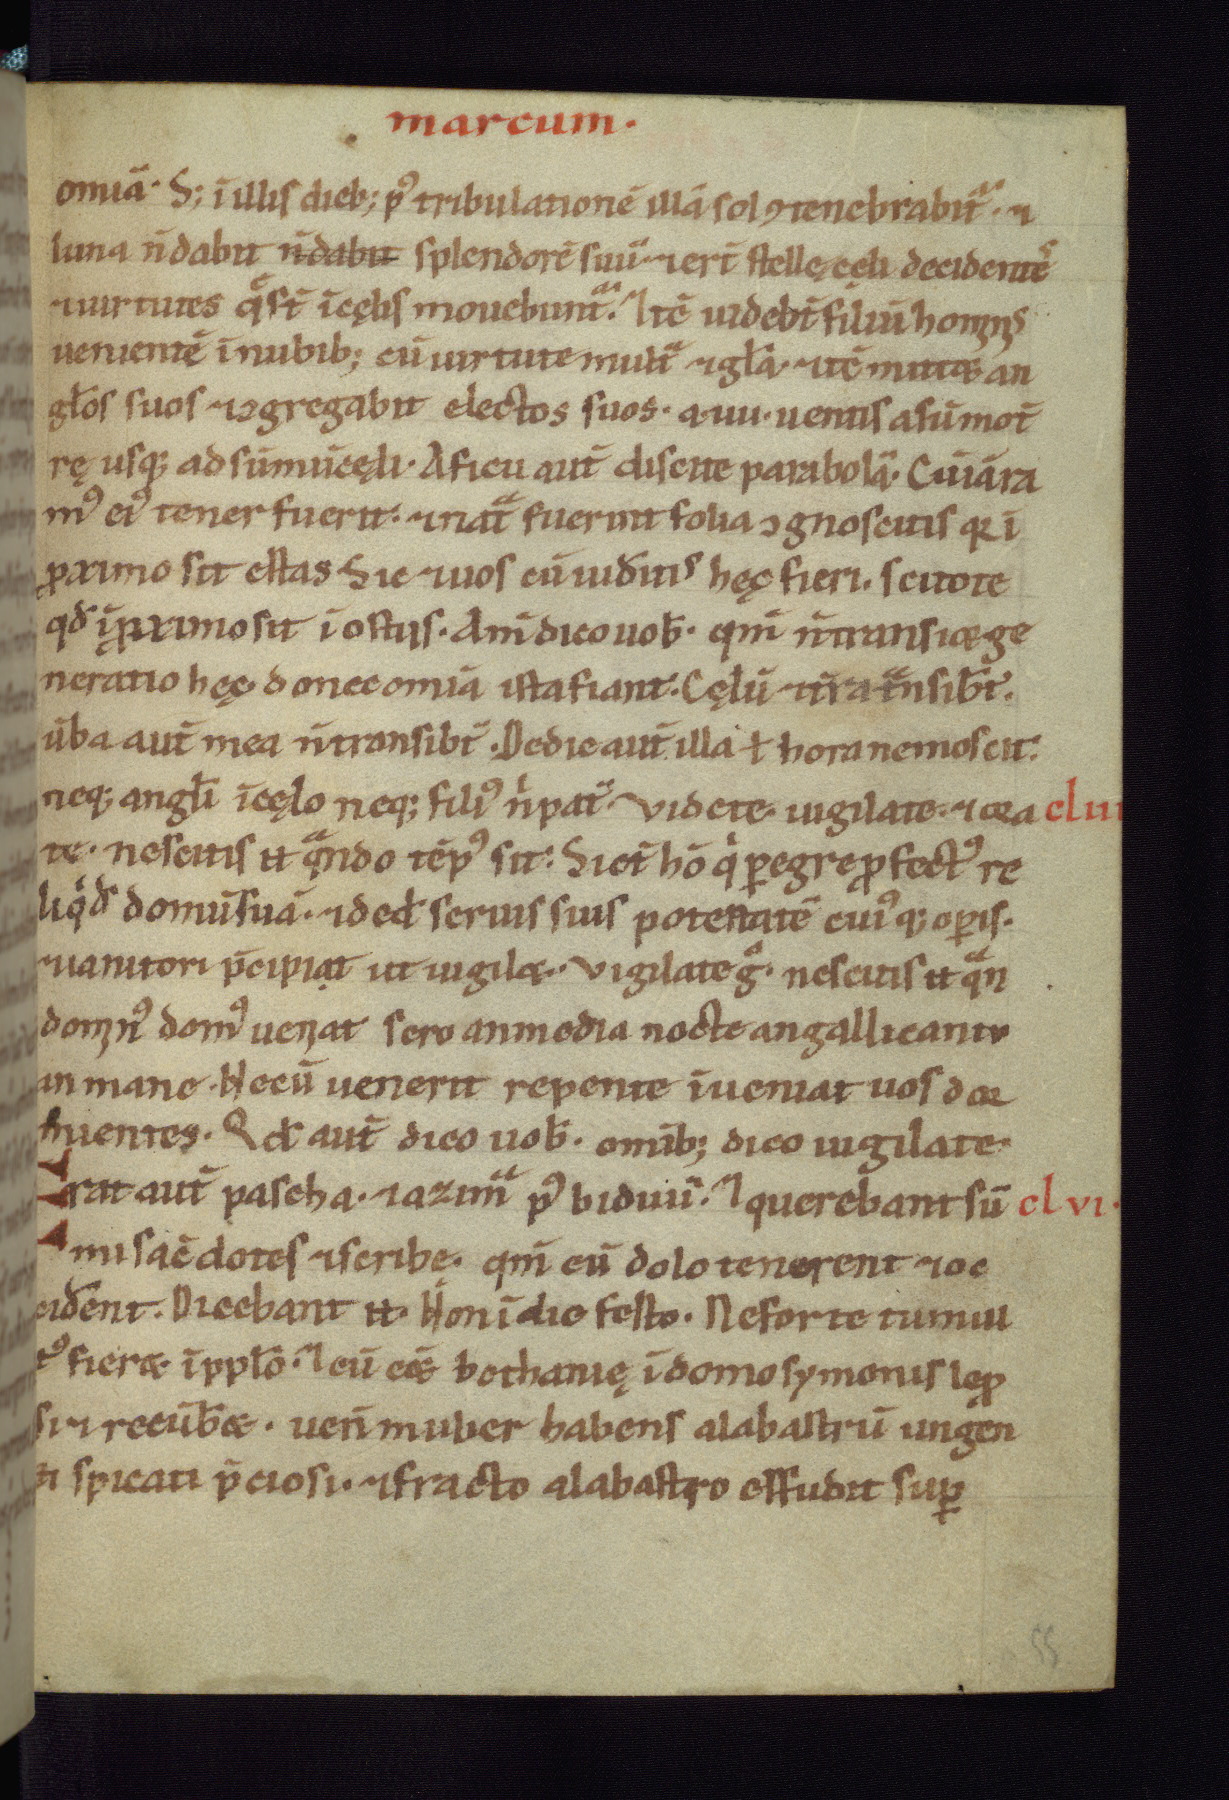 marcum.
omīa. S; ī illis dieb; pꝰ tribulationē illā sol ꝯtenebrabit᷑. ⁊
luna n̄ dabit n̄ dabit splendorē suū. ⁊ er̄t stellę cęli decidentes
⁊ uirtutes q̄ st̄ ī cęlis mouebunt᷑. Itc̄ uidebt̄ filiū hominis
uenientē ī nubib; cū uirtute multa ⁊ gl̄a. ⁊ tc̄ mittæ an
gl̄os suos ⁊ ꝯgregabit electos suos. a .iiii. uentis a sūmo t̄
rę usq; ad sūmū cęli. A ficu aut̄ discite parabolā. Cū iā ra
mꝰ eiꝰ tener fuerit. ⁊ nata fuerint folia ꝯgnoscitis qꝛ ī
ꝓximo sit estas Sic ⁊ uos cū uid̄itis hęc fieri. scitote
qd̄ ī ꝓximo sit ī ostiis. Am̄ dico uob̄. qm̄ n̄ transiæ ge
neratio hęc donec omīa ista fiant. Cęlū ⁊ t̄ra tᵃnsibt̄.
ūba aut̄ mea n̄ transibt̄. De die aut̄ illa ł hora nemo scit.
neq; angl̄i ī cęlo neq; filiꝰ n̄ pat̄. Videte. uigilate. ⁊ ora clu
te. nescitis .n. qᵃndo tēpꝰ sit. Sic̄ hō qͥ ꝑegre ꝓfectꝰ re
liqͥd domū suā. ⁊ ded̄ seruis suis potestatē cuiꝰq; oꝑis.
⁊ ianitori p̄cipiat ut uigilæ. Vigilate gͦ. nescitis .n. qᵃn
dominꝰ domꝰ ueniat sero an media nocte an galli cantu
an mane. Ne cū uenerit repente īueniat uos dor
mientes. Qd̄ aut̄ dico uob̄. omīb; dico uigilate.
Erat aut̄ pascha. ⁊ azima pꝰ biduū. ⁊ querebant sū cl vi.
mi sac̄dotes ⁊ scribe. qm̄ eū dolo tenerent ⁊ oc
cid̄ent. Dicebant .n. Non ī die festo. Ne forte tumul
tꝰ fieræ ī ppl̄o. ⁊ cū eēt bethanię ī domo symonis leꝓ
si ⁊ recūb̄æ. uen̄ mulier habens alabastrū ungen
ti spicati p̄ciosi. ⁊ fracto alabastro effudit suꝑ
55